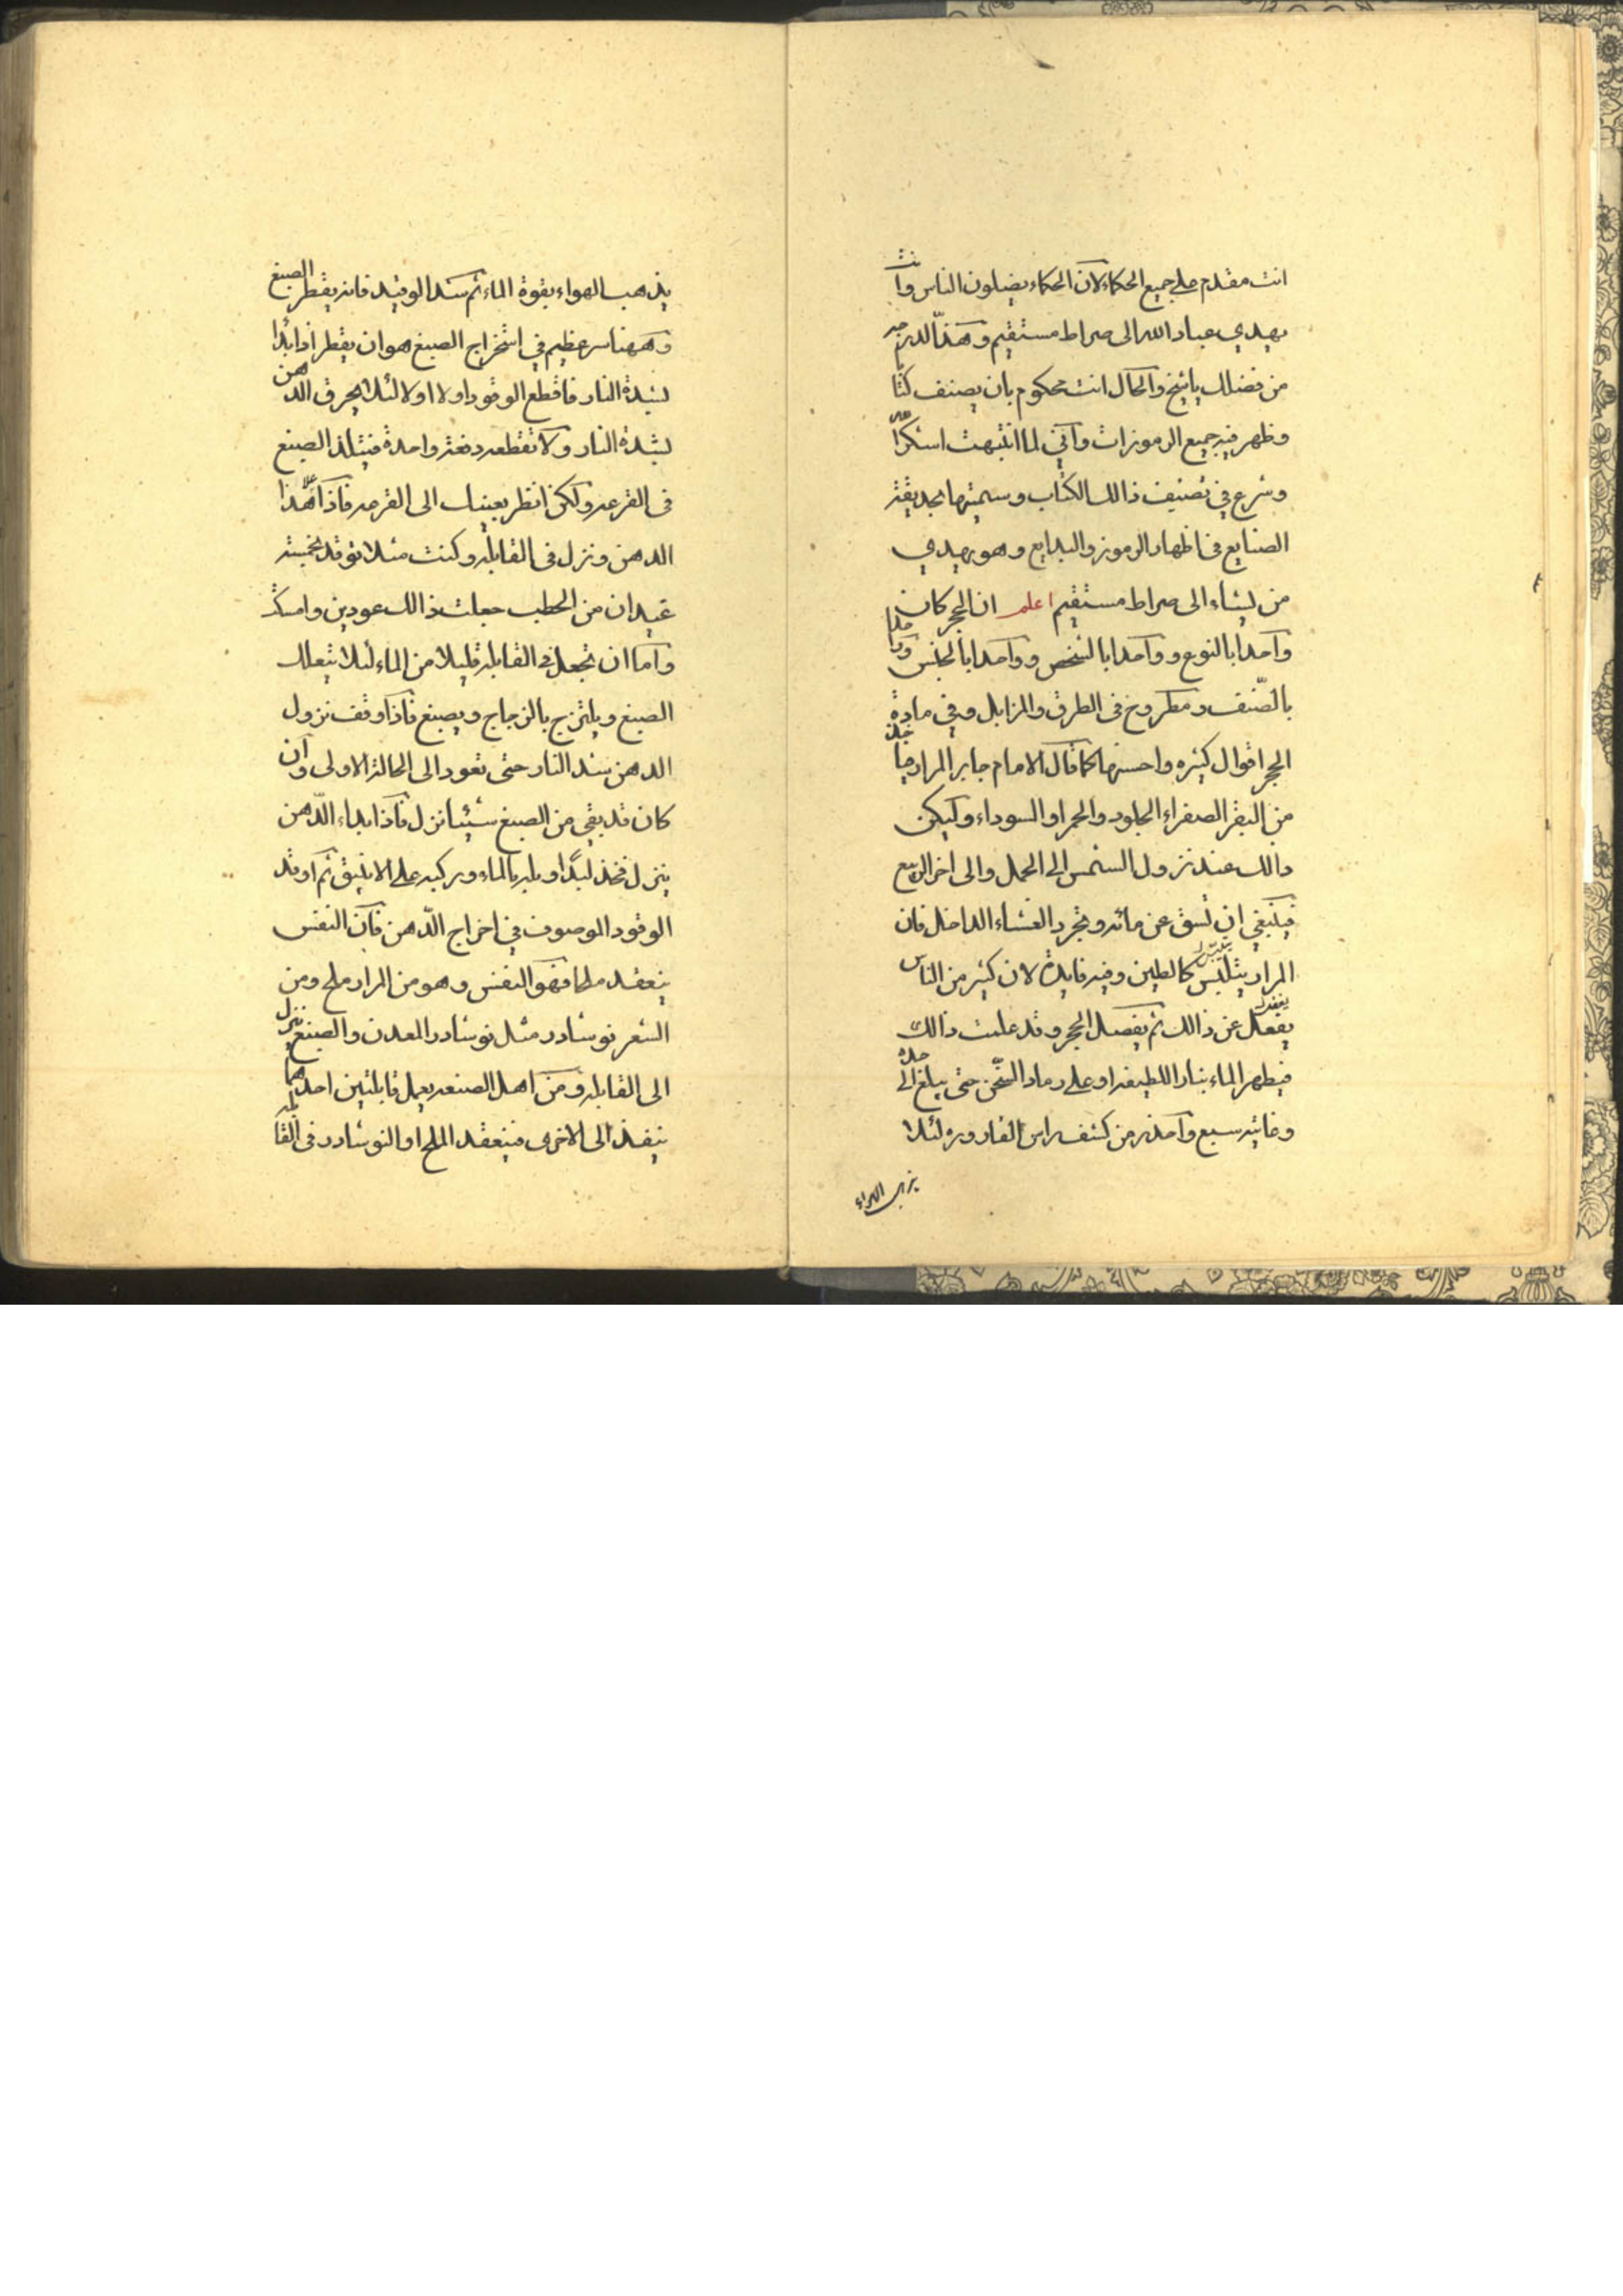 انت مقدم على جميع الحكماء لان الحكماء يضيلون الناس وانت
يهدي عباد الله الى صراط مستقيم وهذا الدرجه
من فضلك ياشيخ والحال انت محكوم بان يصنف كتابا
وظهر فيه جميع الرموزات وآني لما انتبهت اشكرالله
وشرع في تصنيف ذالك الكتاب وسميتها بحديقة
الصنايع في اظهار الرموز والبدايع وهو يهدي
من يشاء الى صراط مستقيم اعلم ان الحجر كان
واحدا بالنوع وواحدا بالشخص وواحدا بالجنس وواحدا
بالصّنف ومطروح في الطرق والمزابل وفي مادة
الحجر اقوال كثيره واحسنها كما قال الامام جابر المرار
من البقر الصفراء الجلود والحمر او السوداء وليكن
ذالك عند نزول الشمس الى الحمل والى اخر الربيع
فينبغي ان تشق عن مائه ويجرد الغشاء الداخل فان
المرار يتلبس كالطين وفيه فايدة لان كثير من الناس
يغفل عن ذالك ثم يفصل الحجر وقد علمت ذالك
فيطهر الماء بنار اللطيفه او على رماد السخن حتى يبلغ الى حده
وغايته سبع واحذر من كشف راس القارورة لئلا
يذهب الهواء
يذهب الهواء بقوة الماء ثم شد الوقيد فانه يقطر الصبغ
وههنا سر عظيم في اشخراج الصبغ هو ان يقطر اذا بدا
لشدة النار فاقطع الوقود اولا اولا لئلا يحرق الدهن
بشدة النار ولا تقطعه دفعة واحدة فيتلذ الصبغ
في القرعه ولكن انظر بعينك الى القرعه فاذا هدا
الدهن ونزل في القابله وكنت مثلا توقد بخمسة
عيدان من الحطب جعلت ذالك عودين وامسك
واما ان تجعل في القابله قليلا من الماء لئلا يتعلك
الصبغ ويلتزج بالزجاج ويصبغ فاذا وقف نزول
الدهن شد النار حتى تعود الى الحالة الاولى وان
كان قد بقي من الصبغ شيئا نزل فاذا بداء الدّهن
ينزل فخذ لبدا وبله بالماء وركبه على الانبيق ثم اوقد
الوقود الموصوف في اخراج الدّهن فان النفس
ينعقد ملحا فهو النفس وهو من المرار ملح ومن
الشعر نوشادر مثل نوشادر المعدن والصبغ ينزل
الى القابله ومن اهل الصنعه يعمل قابلتين احدهما
ينفذ الى الاخرى فينعقد الملح او النوشادر في القابله